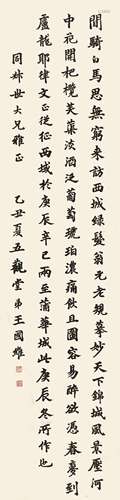 閒騎白馬思無窮來訪西城綠髮翁元老規摹妙天下錦城風景壓河
中花開杷欖芙蕖淡酒泛葡萄琥珀濃痛飲且圖容易醉欲憑春夢到
盧龍耶律文正從征西域於庚辰辛巳兩至蒲華城此庚辰冬所作也
世大兄雅正 乙丑夏五觀堂弟王國維